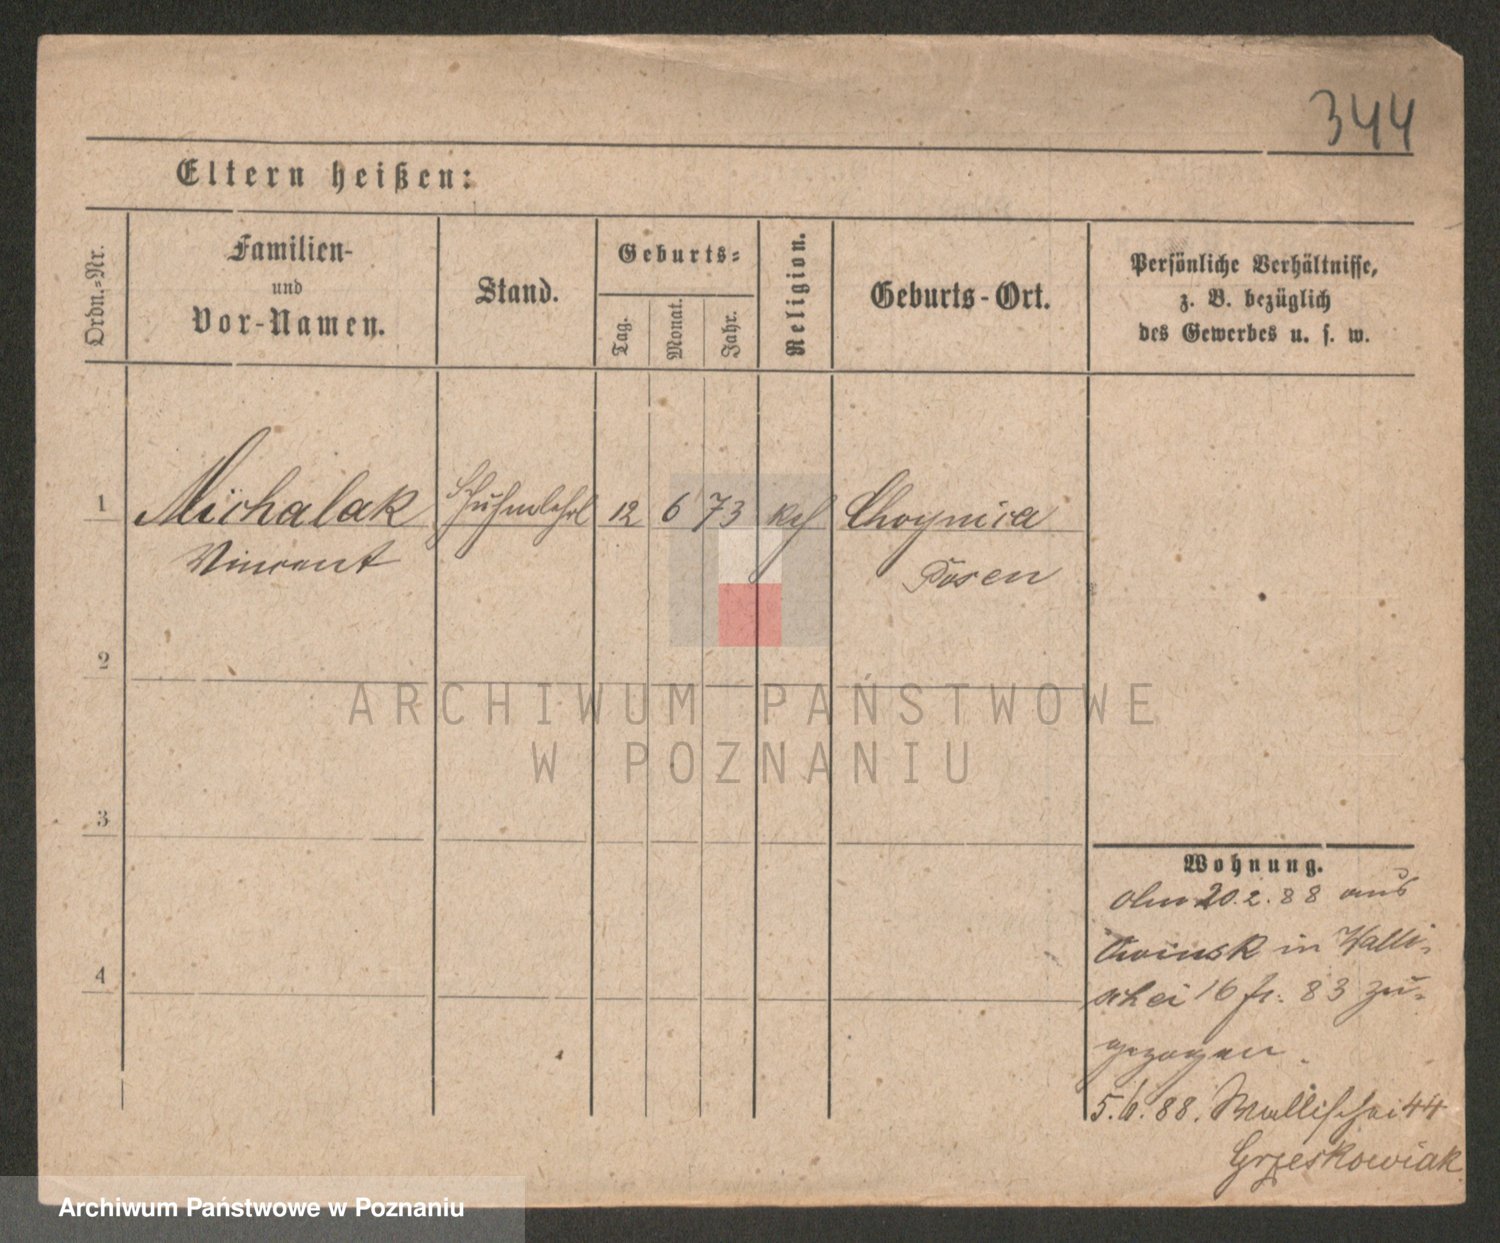 344
Eltern heißen:
Ordn.-Nr.
Familien-
und
Vor-Namen.
Stand.
Geburts-
Tag.
Monat.
Jahr.
Religion.
Geburts-Ort.
Persönliche Verhältnisse,
z. B. bezüglich
des Gewerbes u. s. w.
1 Michalak Schuhmlehrl 12 6 73 kth Choynica
Vincent Posen
2
ARCHIWUM PAŃSTWOWE
W POZNANIU
3
Wohnung.
20.2.88 aus
Owinsk in Walli-
schei 16 fr: 83 zu-
gezogen.
4
5.6.88. Wallischei 44
Grzeskowiak
Archiwum Państwowe w Poznaniu